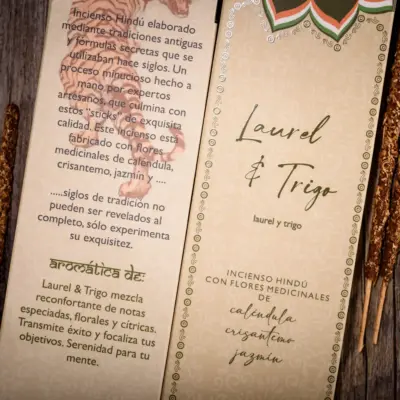 Incienso Hindú elaborado
mediante tradiciones antiguas
y fórmulas secretas que se
utilizaban hace siglos. Un
proceso minucioso hecho a
mano por expertos
artesanos, que culmina con
estos "sticks" de exquisita
calidad. Este incienso está
fabricado con flores
medicinales de caléndula,
crisantemo, jazmín y ....
.....siglos de tradición no
pueden ser revelados al
completo, sólo experimenta
su exquisitez.
aromática de:
Laurel & Trigo mezcla
reconfortante de notas
especiadas, florales y cítricas.
Transmite éxito y focaliza tus
objetivos. Serenidad para tu
mente.
Laurel
& Trigo
laurel y trigo
INCIENSO HINDÚ
CON FLORES MEDICINALES
DE
caléndula
crisantemo
jazmín